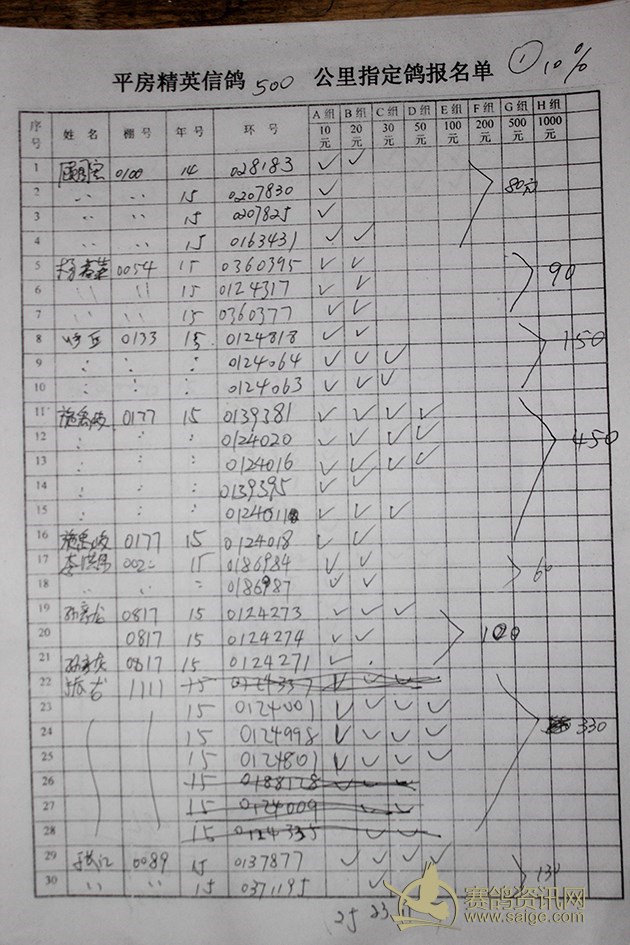 平房精英信鸽 500 公里指定鸽报名单 ① 10%
序号 姓名 棚号 年号 环号 A组10元 B组20元 C组30元 D组50元 E组100元 F组200元 G组500元 H组1000元
1 0100 14 028183 ✓ ✓
2 〃 〃 15 0207830 ✓ 80元
3 〃 〃 15 0207825 ✓
4 〃 〃 15 0163431 ✓ ✓
5 0054 15 0360395 ✓ ✓
6 〃 〃 15 0124317 ✓ ✓ 90
7 〃 〃 15 0360377 ✓ ✓
8 0133 15 0124818 ✓ ✓ 150
9 : : : 0124064 ✓ ✓ ✓
10 : : : 0124063 ✓ ✓ ✓
11 0177 15 0139381 ✓ ✓ ✓ ✓
12 : : : 0124020 ✓ ✓ ✓ ✓ 450
13 : : : 0124016 ✓ ✓ ✓ ✓
14 : : : 0139395 ✓ ✓
15 : : : ✓ ✓ ✓
16 0177 15 0124018 ✓ ✓
17 15 0186984 ✓ ✓ 60
18 〃 〃 : 0186987 ✓ ✓
19 0817 15 0124273 ✓ ✓ ✓
20 0817 15 0124274 ✓ ✓ 120
21 0817 15 0124271 ✓
22 1111 15 0124337 ✓ ✓ ✓
23 15 0124001 ✓ ✓ ✓ ✓
24 15 0124998 ✓ ✓ ✓ ✓ 330
25 15 0124801 ✓ ✓ ✓ ✓
26 15 0188128 ✓ ✓ ✓
27 15 0124009 ✓ ✓
28 15 0124335 ✓ ✓
29 0089 15 0137877 ✓ ✓ ✓ ✓ 130
30 〃 〃 15 0371195 ✓
25 23
赛鸽资讯网
www.saige.com